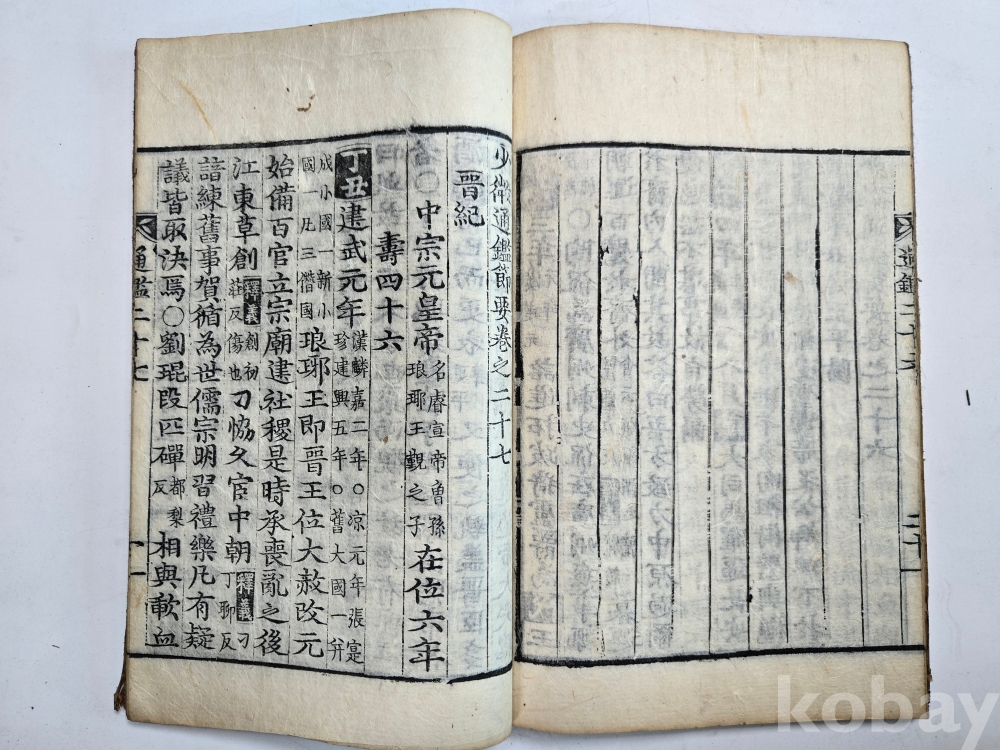 通鑑二十六
二十
少微通鑑節要卷之二十七
晉紀
中宗元皇帝名睿宣帝曾孫琅琊王覲之子在位六年
壽四十六
丁丑建武元年漢麟嘉二年○凉元年張寔建興五年○舊大國一并
成小國一新小國一凡三僭國琅琊王即晉王位大赦改元
始備百官立宗廟建社稷是時承喪亂之後
江東草創釋義創初莊反傷也刁協久宦中朝釋義刁丁聊反
諳練舊事賀循為世儒宗明習禮樂凡有疑
議皆取決焉○劉琨段匹磾都黎反相與歃血
通鑑二十七
一
kobay